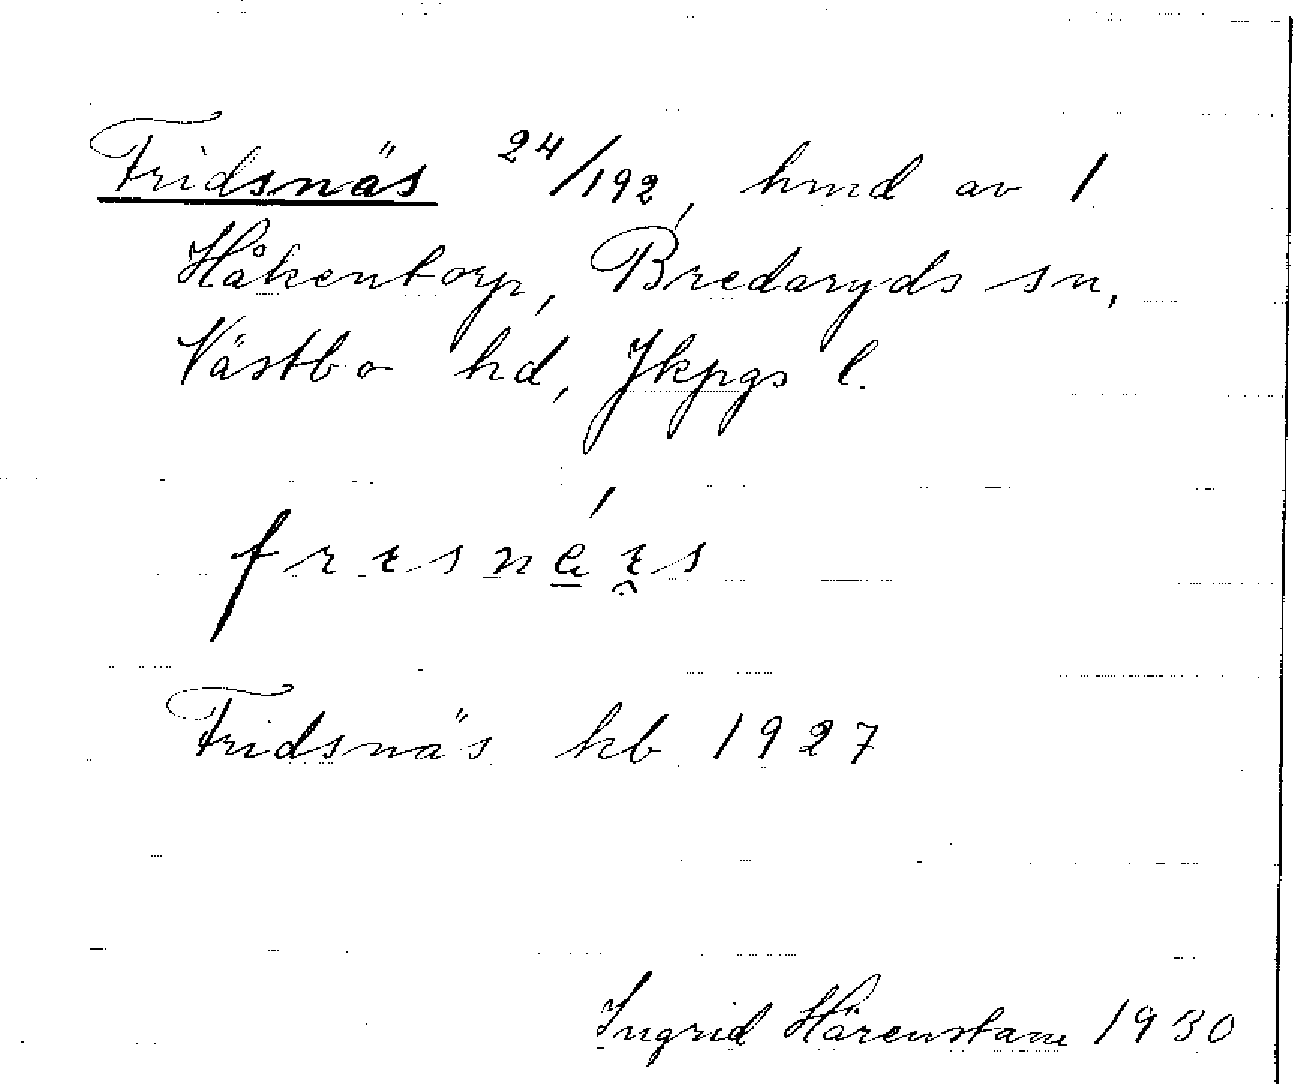 Fridsnäs 24/192, hmd av 1
Håkentorp, Bredaryds sn,
Västbo hd, Jkpgs l.
Fridsnäs kb 1927
Ingrid Härenstam 1930